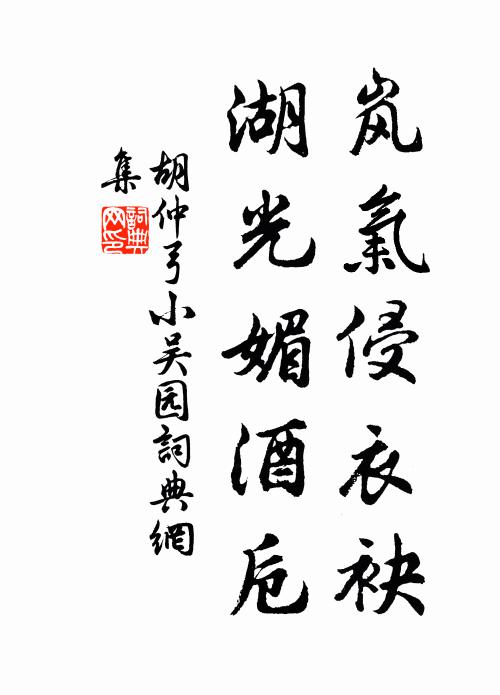 岚氣侵衣袂
湖光媚酒卮
胡仲弓小吴园詞典網
集
詞典
网印